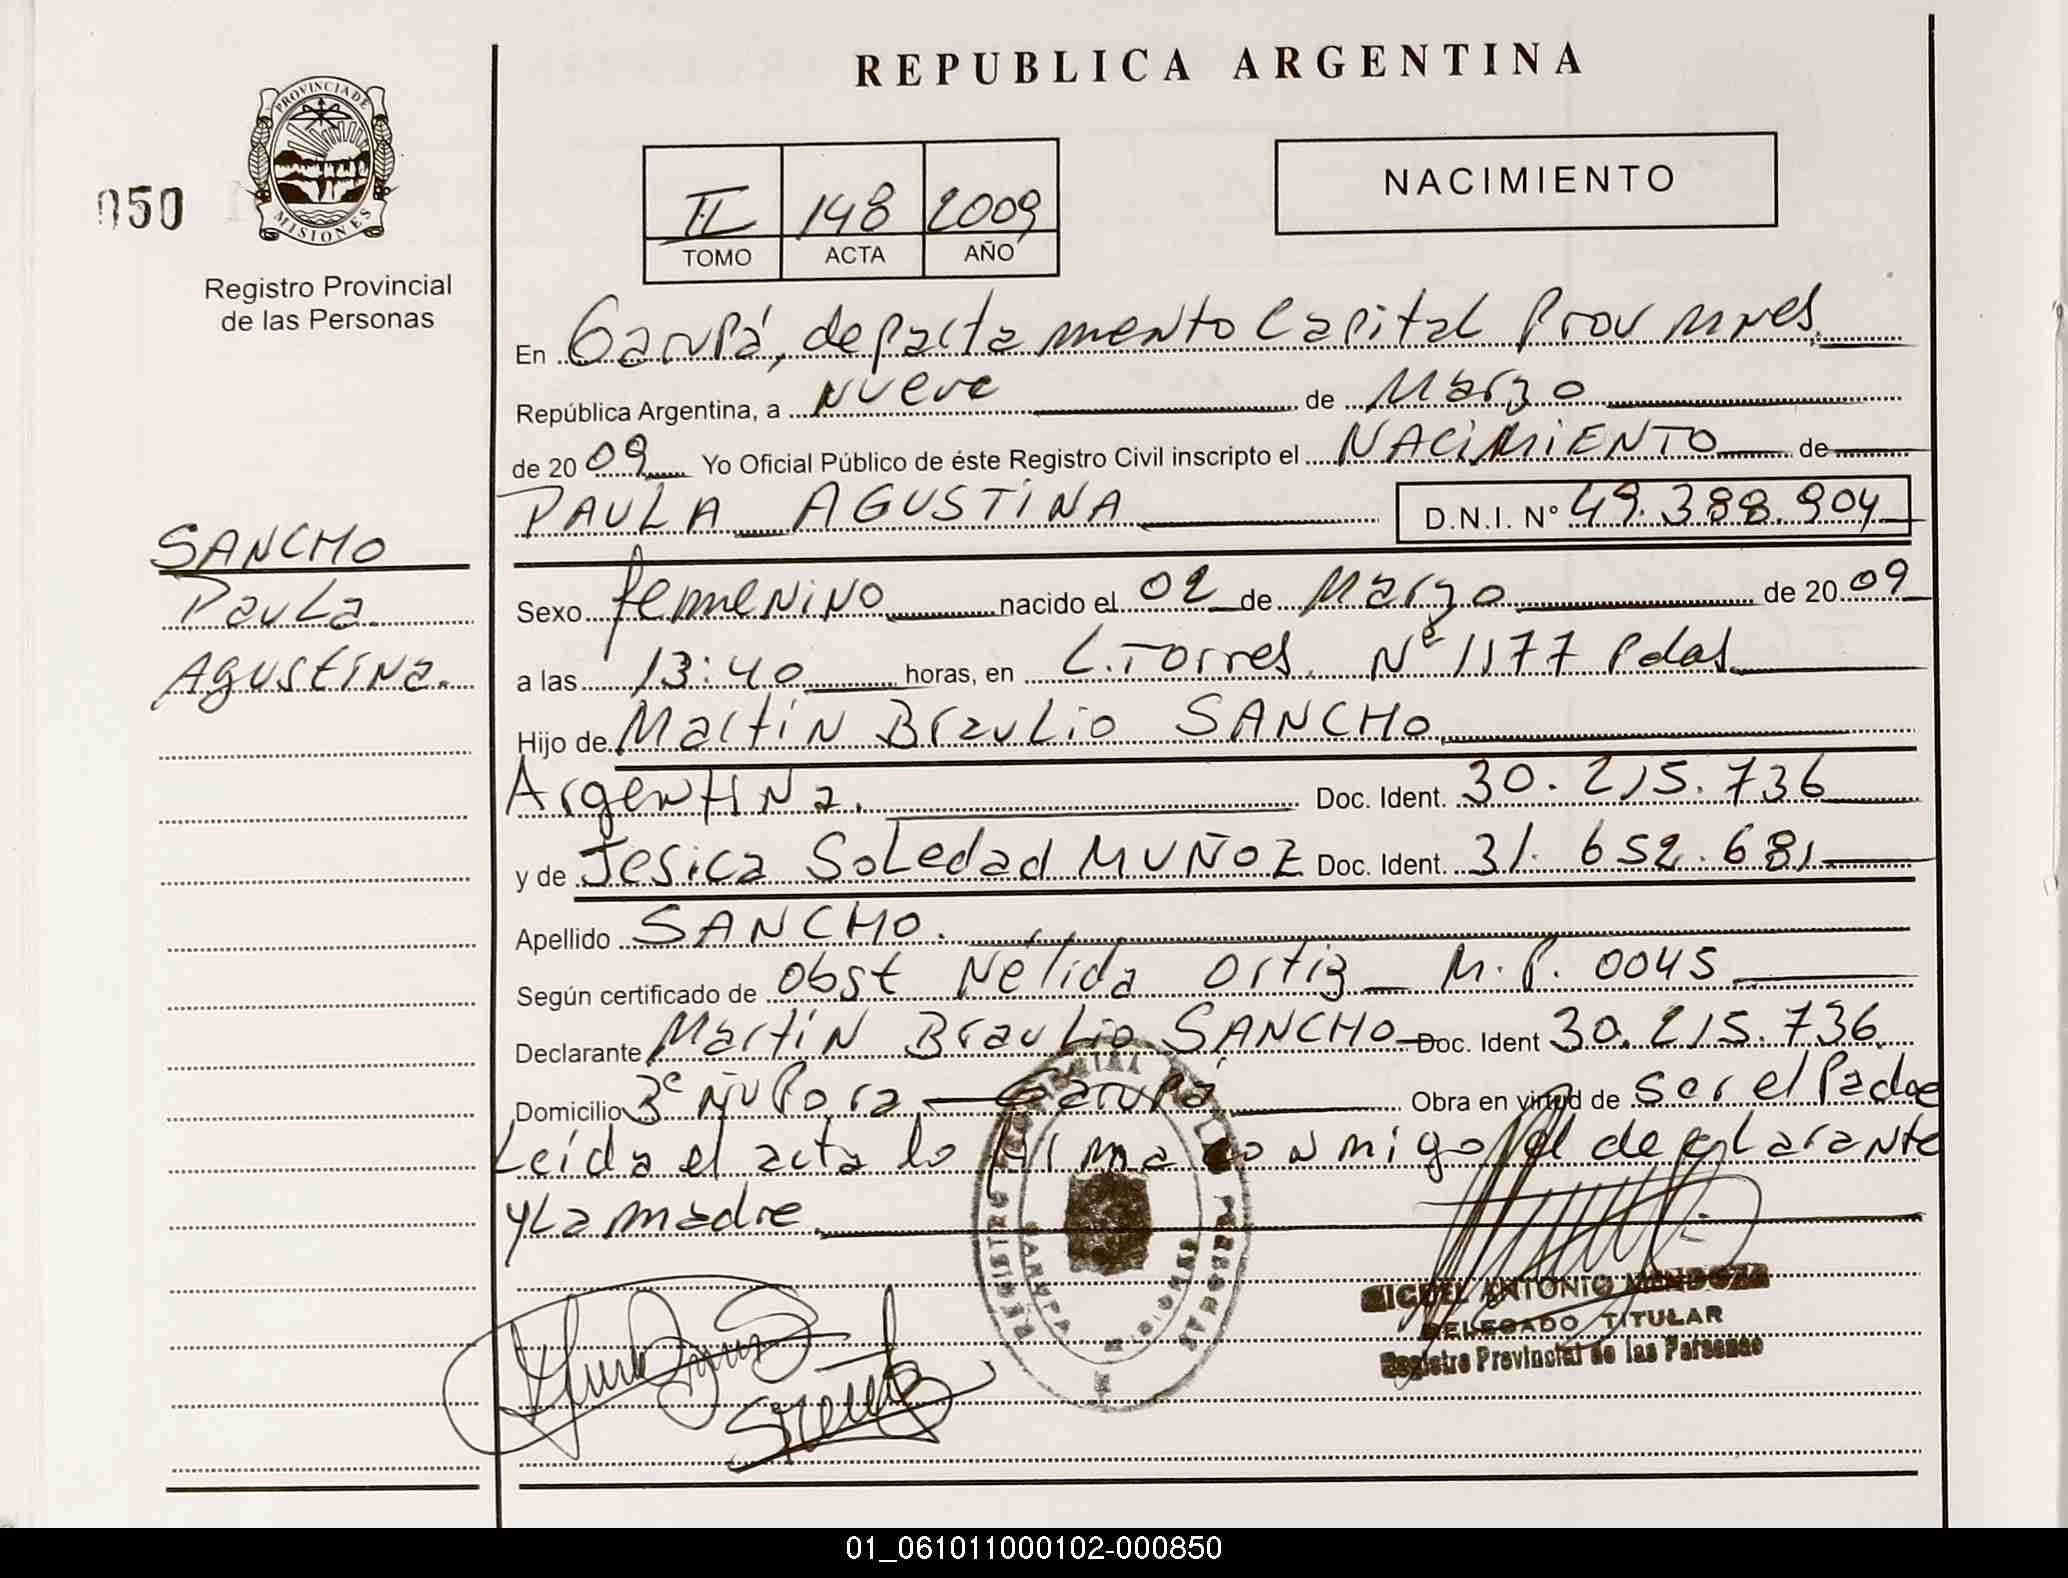 REPUBLICA ARGENTINA
PROVINCIA DE
MISIONES
050
Registro Provincial
de las Personas
II 148 2009
TOMO ACTA AÑO
NACIMIENTO
En Garupá, departamento Capital Prov Mnes.
República Argentina, a nueve de Marzo
de 20 09 Yo Oficial Público de éste Registro Civil inscripto el NACIMIENTO de
PAULA AGUSTINA D.N.I. N° 49.388.904
SANCHO
Paula
Agustina.
Sexo femenino nacido el 02 de Marzo de 20 09
a las 13:40 horas, en L. Torres. Nº 1177 Pdas
Hijo de Martín Braulio SANCHO
Argentina. Doc. Ident. 30.215.736
y de Jesica Soledad MUÑOZ Doc. Ident. 31.652.681
Apellido SANCHO.
Según certificado de obst Nélida Ortiz M.P. 0045
Declarante Martín Braulio SANCHO Doc. Ident 30.215.736.
Domicilio Ñu Pora Garupá Obra en virtud de ser el Padre
Leída el acta lo firma conmigo el declarante
y la madre.
MIGUEL ANTONIO MENDOZA
DELEGADO TITULAR
Registro Provincial de las Personas
01_061011000102-000850